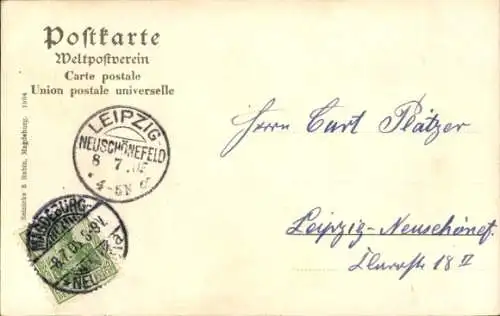 Postkarte
Weltpostverein
Carte postale
Union postale universelle
Reinicke & Rubin, Magdeburg. 1904
LEIPZIG-
NEUSCHÖNEFELD
8 7 .05
* 4-5N
MAGDEBURG-
8.7.05. 8-9V.
NEU
Herrn Curt Plätzer
Leipzig-Neuschönef.
Clarastr 18 II